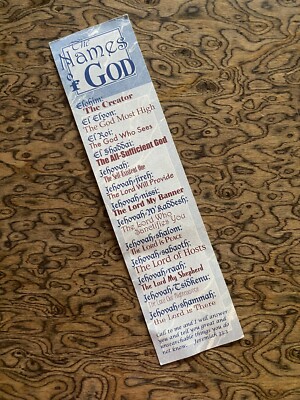 The
Names
of GOD
Elohim:
The Creator
El Elyon:
The God Most High
El Roi:
The God Who Sees
El Shaddai:
The All-Sufficient God
Jehovah:
The Self Existing One
Jehovah-jireh:
The Lord Will Provide
Jehovah-nissi:
The Lord My Banner
Jehovah-M'Kaddesh:
The Lord Who
Sanctifies You
Jehovah-shalom:
The Lord is Peace
Jehovah-sabaoth:
The Lord of Hosts
Jehovah-raah:
The Lord My Shepherd
Jehovah-Tsidkenu:
The Lord Our Righteousness
Jehovah-shammah:
the Lord is There
Call to me and I will answer
you and tell you great and
unsearchable things you do
not know. Jeremiah 33:3